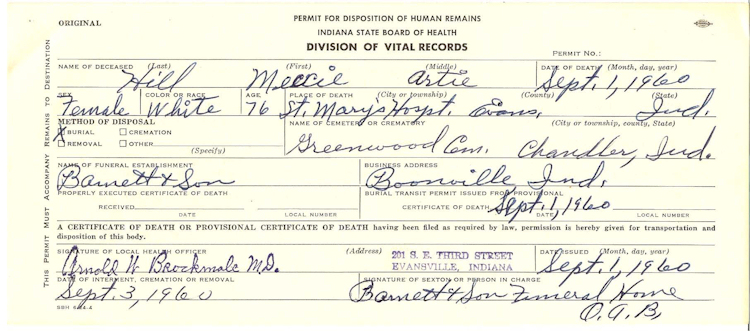 ORIGINAL
PERMIT FOR DISPOSITION OF HUMAN REMAINS
INDIANA STATE BOARD OF HEALTH
DIVISION OF VITAL RECORDS
PERMIT NO.:
THIS PERMIT MUST ACCOMPANY REMAINS TO DESTINATION
NAME OF DECEASED (Last) (First) (Middle) DATE OF DEATH (Month, day, year)
Hill Meccie Artie Sept. 1, 1960
SEX COLOR OR RACE AGE PLACE OF DEATH (City or township) (County) (State)
Female White 76 St. Mary's Hospt. Evans. Ind.
METHOD OF DISPOSAL NAME OF CEMETERY OR CREMATORY (City or township, county, State)
X BURIAL CREMATION
REMOVAL OTHER
(Specify)
Greenwood Cem. Chandler, Ind.
NAME OF FUNERAL ESTABLISHMENT BUSINESS ADDRESS
Barnett & Son Boonville, Ind.
PROPERLY EXECUTED CERTIFICATE OF DEATH BURIAL TRANSIT PERMIT ISSUED FROM PROVISIONAL
RECEIVED CERTIFICATE OF DEATH Sept. 1, 1960
DATE LOCAL NUMBER DATE LOCAL NUMBER
A CERTIFICATE OF DEATH OR PROVISIONAL CERTIFICATE OF DEATH having been filed as required by law, permission is hereby given for transportation and
disposition of this body.
SIGNATURE OF LOCAL HEALTH OFFICER (Address) DATE ISSUED (Month, day, year)
Arnold W Brockmole M.D. 201 S. E. THIRD STREET Sept. 1, 1960
EVANSVILLE, INDIANA
DATE OF INTERMENT, CREMATION OR REMOVAL SIGNATURE OF SEXTON OR PERSON IN CHARGE
Sept. 3, 1960 Barnett & Son Funeral Home
O.A.B.
SBH